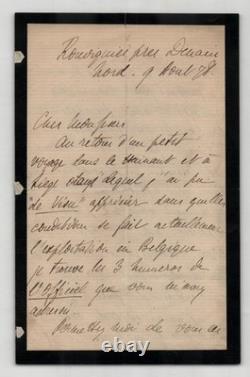 près Denain
Nord. 9 Août 78
Cher Monsieur
Au retour d'un petit
voyage dans le Hainaut et à
Liège durant lequel j'ai pu
"de visu" apprécier dans quelles
conditions se fait actuellement
l'exploitation en Belgique
je trouve les 3 numéros de
l'Officiel que vous m'avez
adressés.
Permettez moi de vous en